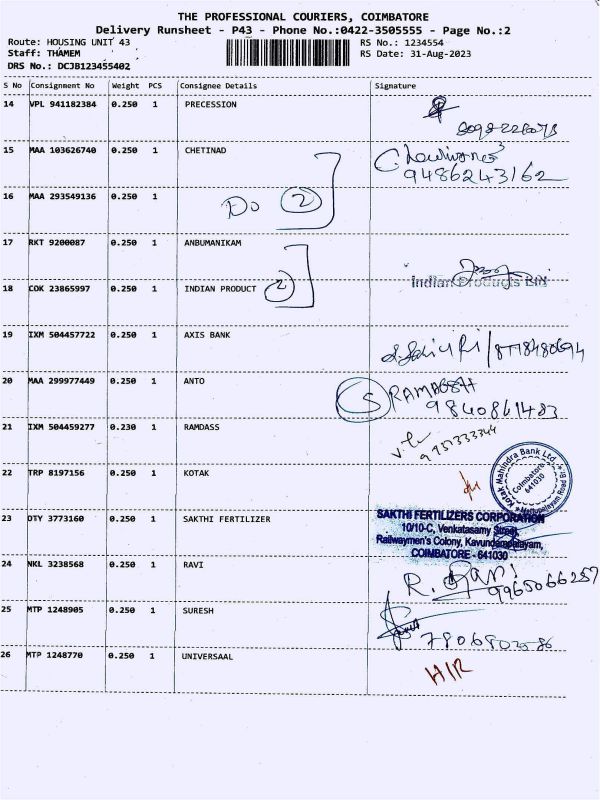 THE PROFESSIONAL COURIERS, COIMBATORE
Delivery Runsheet - P43 - Phone No.:0422-3505555 - Page No.:2
Route: HOUSING UNIT 43 RS No.: 1234554
Staff: THAMEM RS Date: 31-Aug-2023
DRS No.: DCJB123455402
S No Consignment No Weight PCS Consignee Details Signature
14 VPL 941182384 0.250 1 PRECESSION
15 MAA 103626740 0.250 1 CHETINAD
9486243162
16 MAA 293549136 0.250 1 Do 2
17 RKT 9200087 0.250 1 ANBUMANIKAM
Indian Products BIN
18 COK 23865997 0.250 1 INDIAN PRODUCT 2
19 IXM 504457722 0.250 1 AXIS BANK
20 MAA 299977449 0.250 1 ANTO S RAMAESH
9840861483
21 IXM 504459277 0.230 1 RAMDASS
22 TRP 8197156 0.250 1 KOTAK
Kotak Mahindra Bank Ltd.
Coimbatore
641030
23 OTY 3773160 0.250 1 SAKTHI FERTILIZER
SAKTHI FERTILIZERS CORPORATION
10/10-C, Venkatasamy Street,
Railwaymen's Colony, Kavundampalayam,
COIMBATORE - 641030
24 NKL 3238568 0.250 1 RAVI R. Rani
9965066257
25 MTP 1248905 0.250 1 SURESH
26 MTP 1248770 0.250 1 UNIVERSAAL H/R